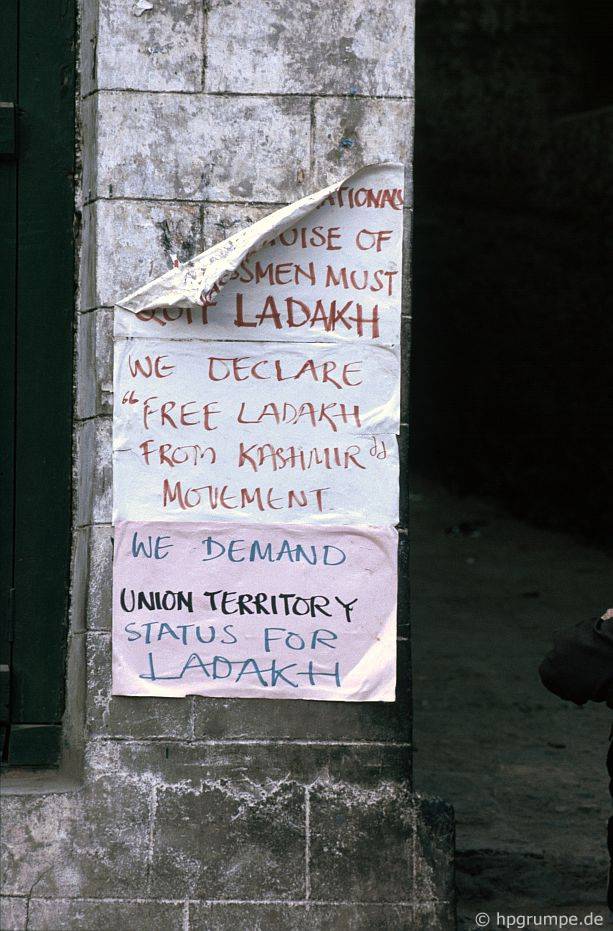 OF
MUST
QUIT LADAKH
WE DECLARE
"FREE LADAKH
FROM KASHMIR"
MOVEMENT
WE DEMAND
UNION TERRITORY
STATUS FOR
LADAKH
© hpgrumpe.de